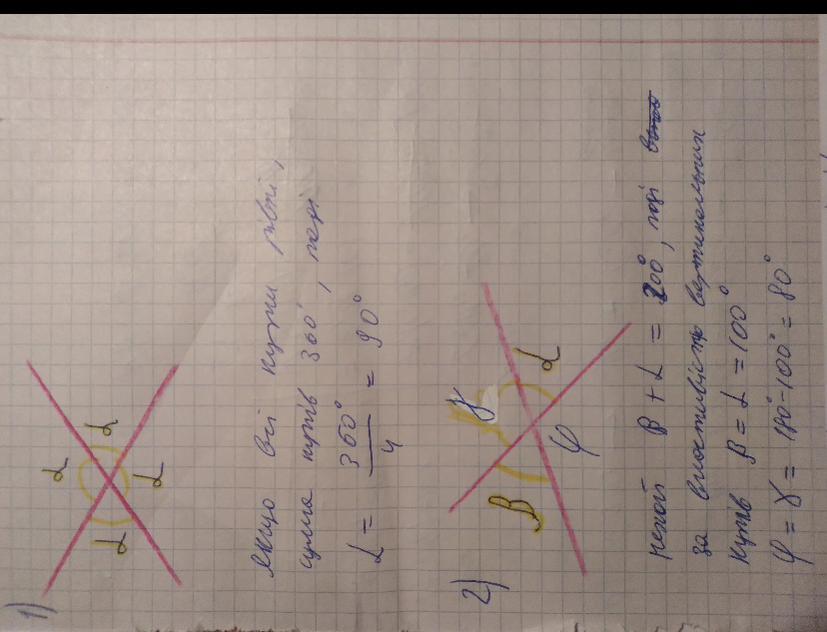 1)
α
α
α
α
якщо всі кути рівні,
сума кутів 360°, тоді
α = 360° / 4 = 90°
2)
β
γ
α
φ
нехай β + α = 200°, тоді
за властивістю вертикальних
кутів β = α = 100°
φ = γ = 180° - 100° = 80°